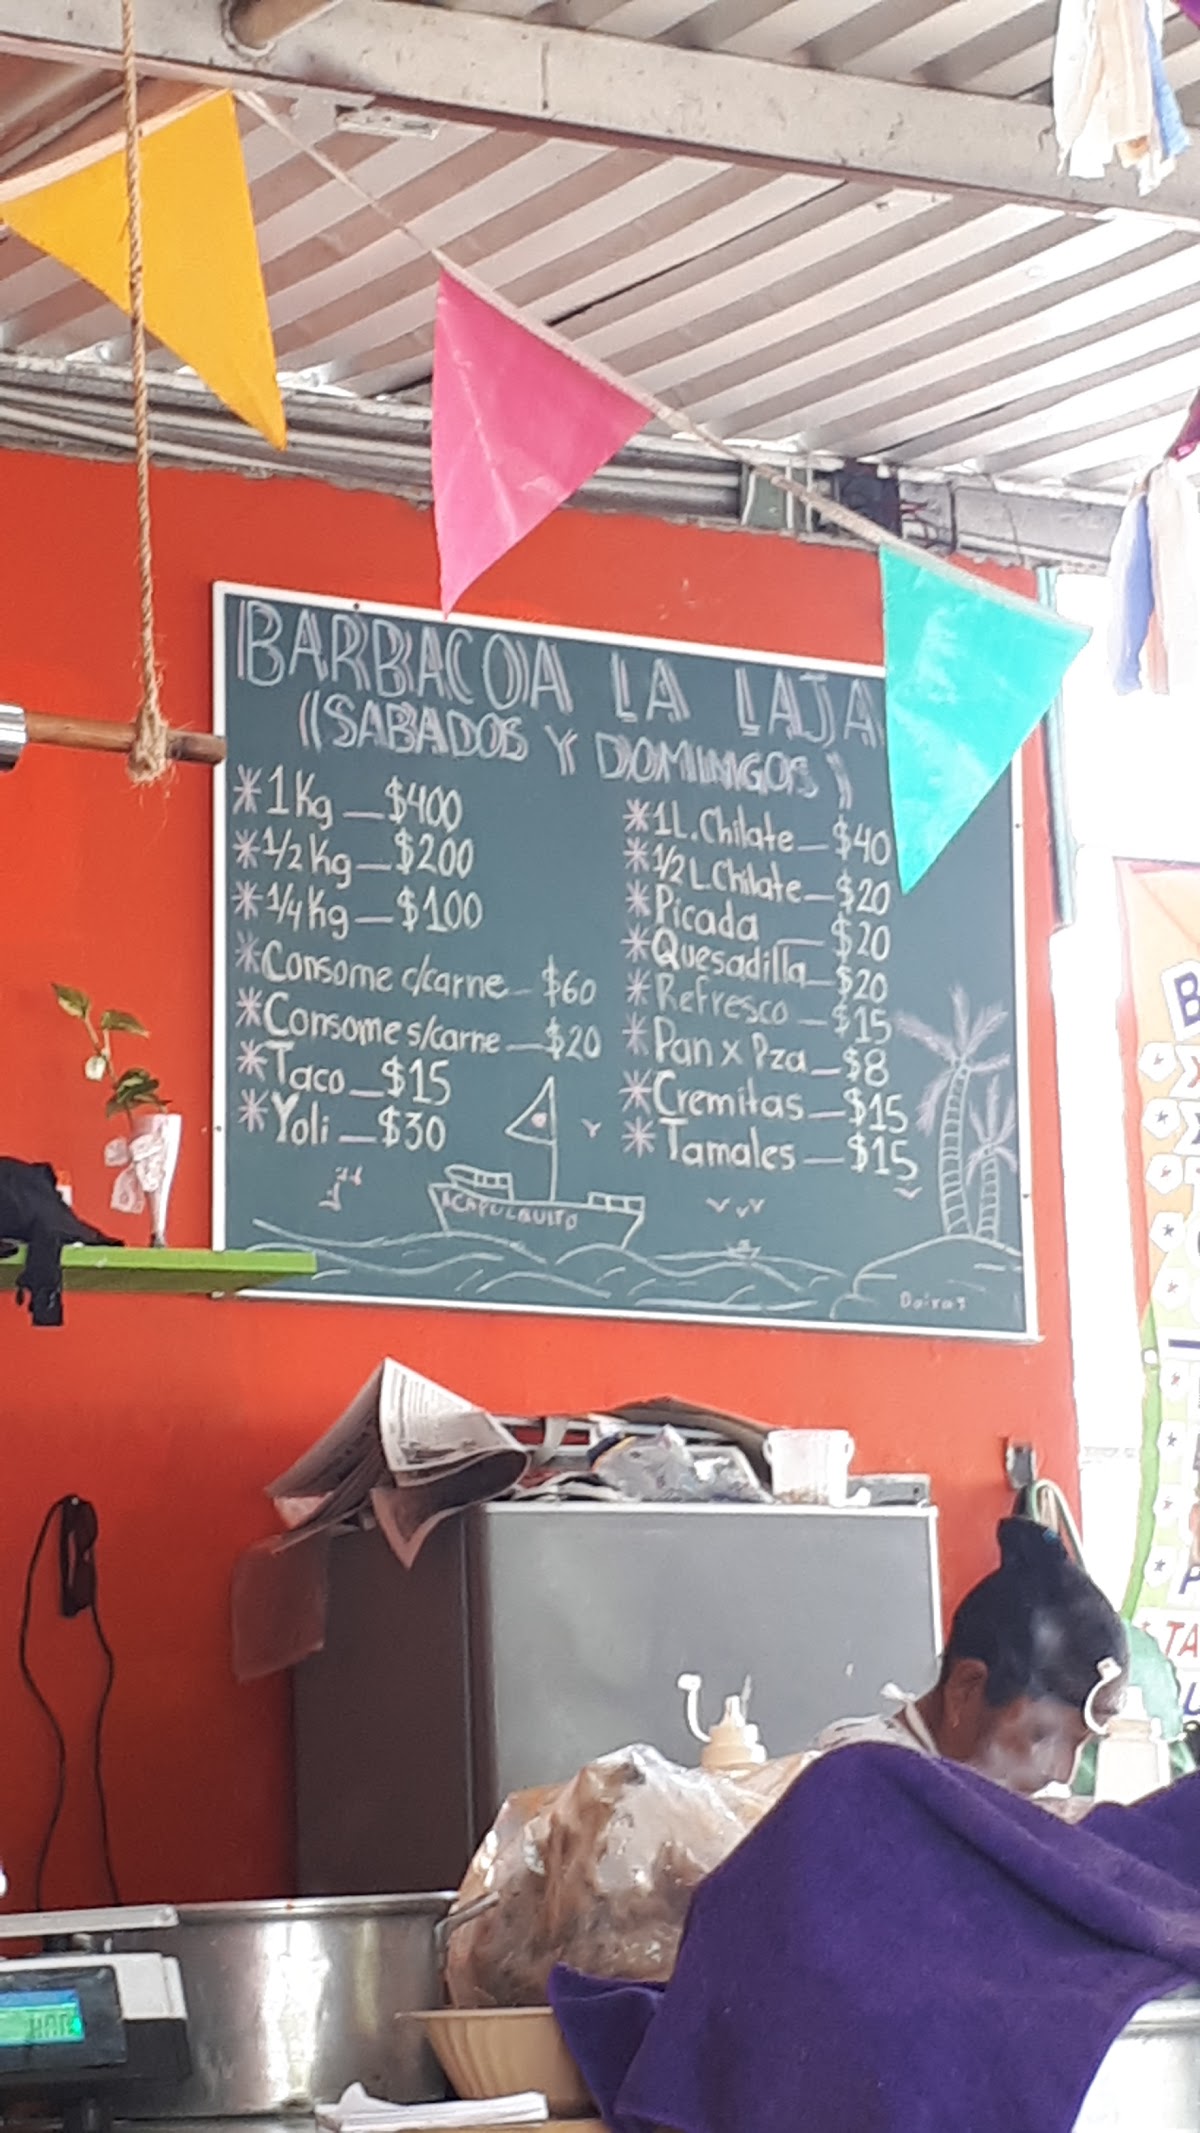 BARBACOA LA LAJA
(SABADOS Y DOMINGOS)
*1Kg—$400
*1/2Kg—$200
*1/4Kg—$100
*Consome c/carne—$60
*Consome s/carne—$20
*Taco—$15
*Yoli—$30
*1L. Chilate—$40
*1/2 L. Chilate—$20
*Picada—$20
*Quesadilla—$20
*Refresco—$15
*Pan x Pza—$8
*Cremitas—$15
*Tamales—$15
ACAPULQUITO
TA